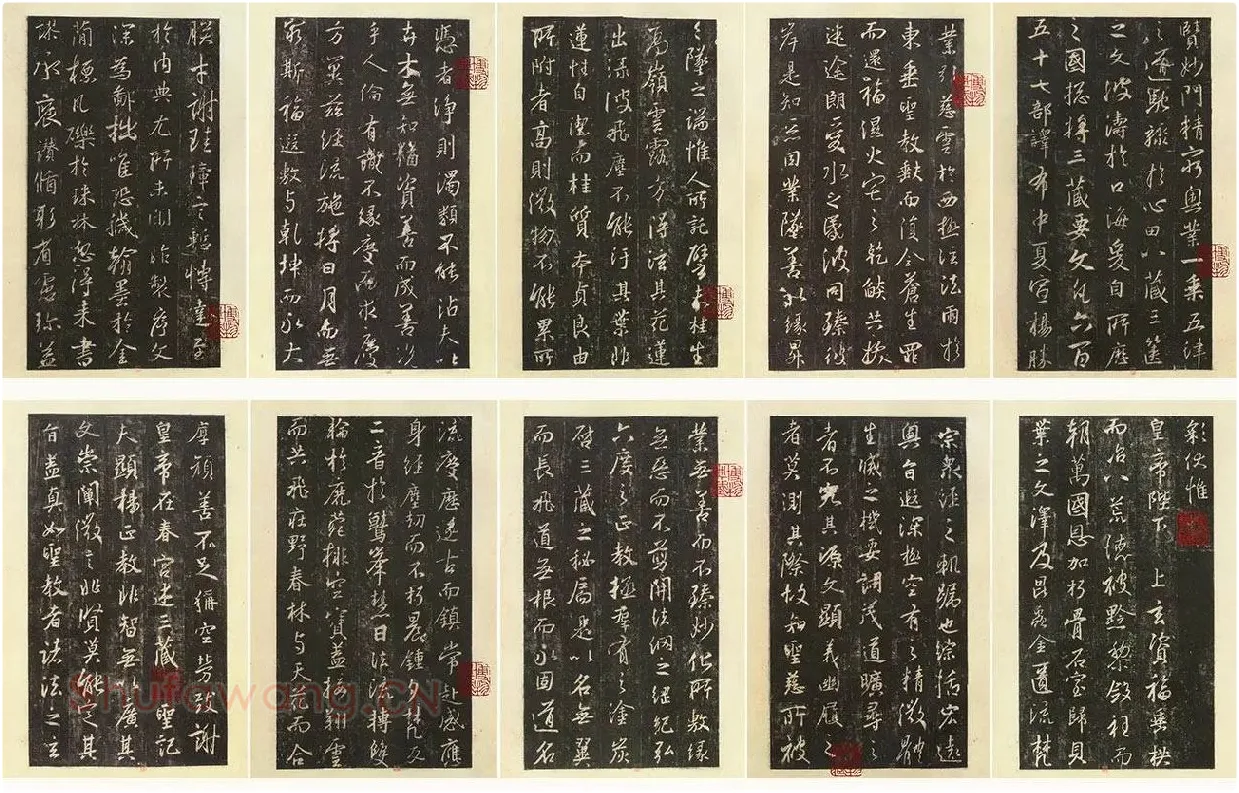 賢妙門精窮奧業一乘五律
之道馳驟於心田八藏三篋
之文波濤於口海爰自所歷
之國總將三藏要文凡六百
五十七部譯布中夏宣揚勝
業引慈雲於西極注法雨於
東垂聖教缺而復全蒼生罪
而還福濕火宅之乾焰共拔
迷途朗愛水之昏波同臻彼
岸是知惡因業墜善以緣昇
昇墜之端惟人所託譬夫桂生
高嶺雲露方得泫其花蓮
出淥波飛塵不能污其葉非
蓮性自潔而桂質本貞良由
所附者高則微物不能累所
憑者淨則濁類不能沾夫以
卉木無知猶資善而成善況
乎人倫有識不緣慶而求慶
方冀茲經流施將日月而無
窮斯福遐敷與乾坤而永大
朕才謝珪璋言慚博達至
於內典尤所未閑昨製序文
深為鄙拙唯恐穢翰墨於金
簡標瓦礫於珠林忽得來書
謬承褒讚循躬省慮彌益
厚顏善不足稱空勞致謝
皇帝在春宮述三藏聖記
夫顯揚正教非智無以廣其
文崇闡微言非賢莫能定其
旨蓋真如聖教者諸法之玄
宗眾經之軌躅也綜括宏遠
奧旨遐深極空有之精微體
生滅之機要詞茂道曠尋之
者不究其源文顯義幽履之
者莫測其際故知聖慈所被
業無善而不臻妙化所敷緣
無惡而不剪開法網之綱紀弘
六度之正教拯群有之塗炭
啟三藏之秘扃是以名無翼
而長飛道無根而永固道名
流慶歷遂古而鎮常赴感應
身經塵劫而不朽晨鐘夕梵交
二音於鷲峯慧日法流轉雙
輪於鹿菀排空寶蓋接翔雲
而共飛莊野春林與天花而合
彩伏惟
皇帝陛下上玄資福垂拱
而治八荒德被黔黎斂衽而
朝萬國恩加朽骨石室歸貝
葉之文澤及昆蟲金匱流梵
Shufawang.CN